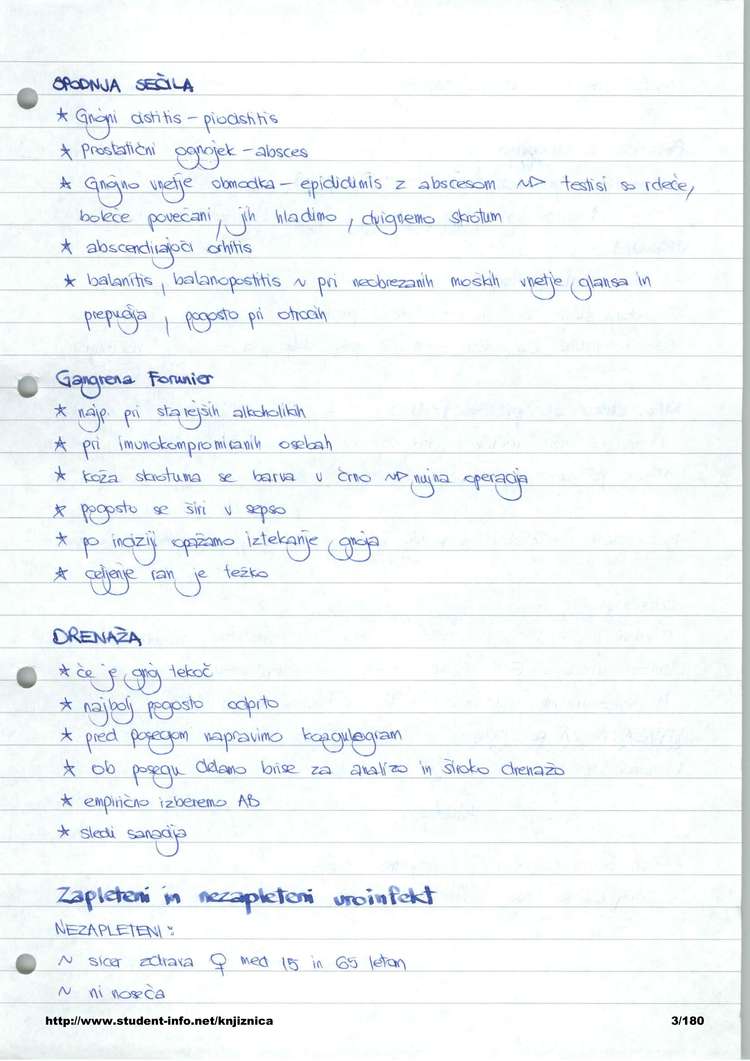 SPODNJA SEČILA
* Gnojni cistitis - piocistitis
* Prostatični ognojek - absces
* Gnojno vnetje obmodka - epididimis z abscesom ~> testisi so rdeče,
boleče povečani, jih hladimo, dvignemo skrotum
* abscendirajoči orhitis
* balanitis, balanopostitis ~ pri neobrezanih moških vnetje glansa in
prepucija, pogosto pri otrocih
Gangrena Fornier
* najp. pri starejših alkoholikih
* pri imunokompromiranih osebah
* koža skrotuma se barva v črno ~> nujna operacija
* pogosto se širi v sepso
* po inciziji opažamo iztekanje gnoja
* celjenje ran je težko
DRENAŽA
* če je gnoj tekoč
* najbolj pogosto odprto
* pred posegom napravimo koagulogram
* ob posegu delamo brise za analizo in široko drenažo
* empirično izberemo AB
* sledi sanacija
Zapleteni in nezapleteni uroinfekt
NEZAPLETENI:
~ sicer zdrava ♀ med 15 in 65 letom
~ ni noseča
http://www.student-info.net/knjiznica 3/180